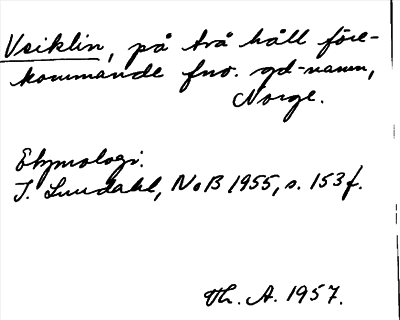 Veiklin, på två håll före-
kommande fno. gd-namn,
Norge.
Etymologi:
I. Lundahl, NoB 1955, s. 153 f.
Th. A. 1957.